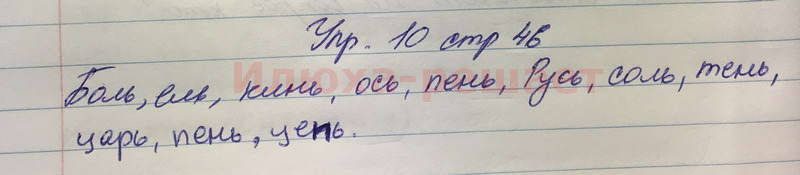 Упр. 10 стр 46
Боль, ель, клнь, ось, пень, Русь, соль, тень,
царь, пень, цепь.